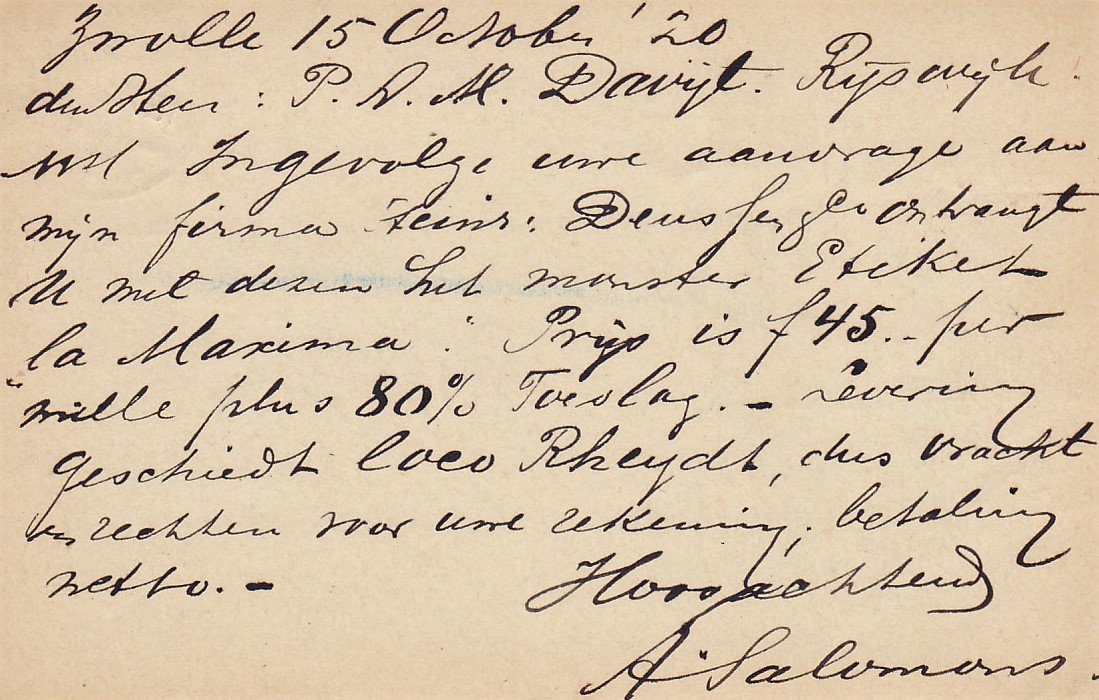 Zwolle 15 October '20
den Heer : P. A. M. Davijt. Rijswijk.
Ingevolge uwe aanvrage aan
mijn firma ontvangt
U met dezen het monster Etiket
"la Maxima". Prijs is f 45.- per
mille plus 80% Toeslag. - Levering
geschiedt loco Rheydt, dus vracht
en rechten voor uwe rekening, betaling
netto. -
Hoogachtend
A. Salomons.